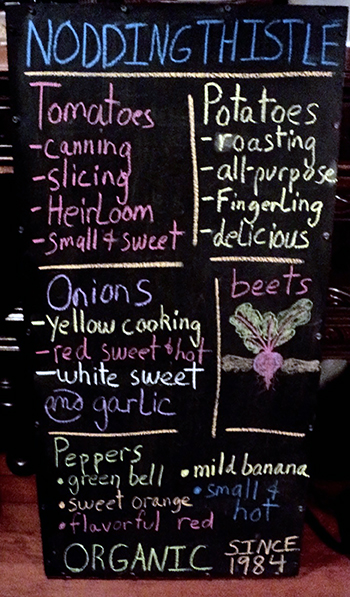 NODDING THISTLE
Tomatoes
-canning
-slicing
-HeirLoom
-Small & sweet
Potatoes
-roasting
-all-purpose
-FingerLing
-delicious
Onions
-yellow cooking
-red sweet & hot
-white sweet
and garlic
beets
Peppers
•green bell
•sweet orange
•flavorful red
•mild banana
•small &
hot
ORGANIC SINCE
1984